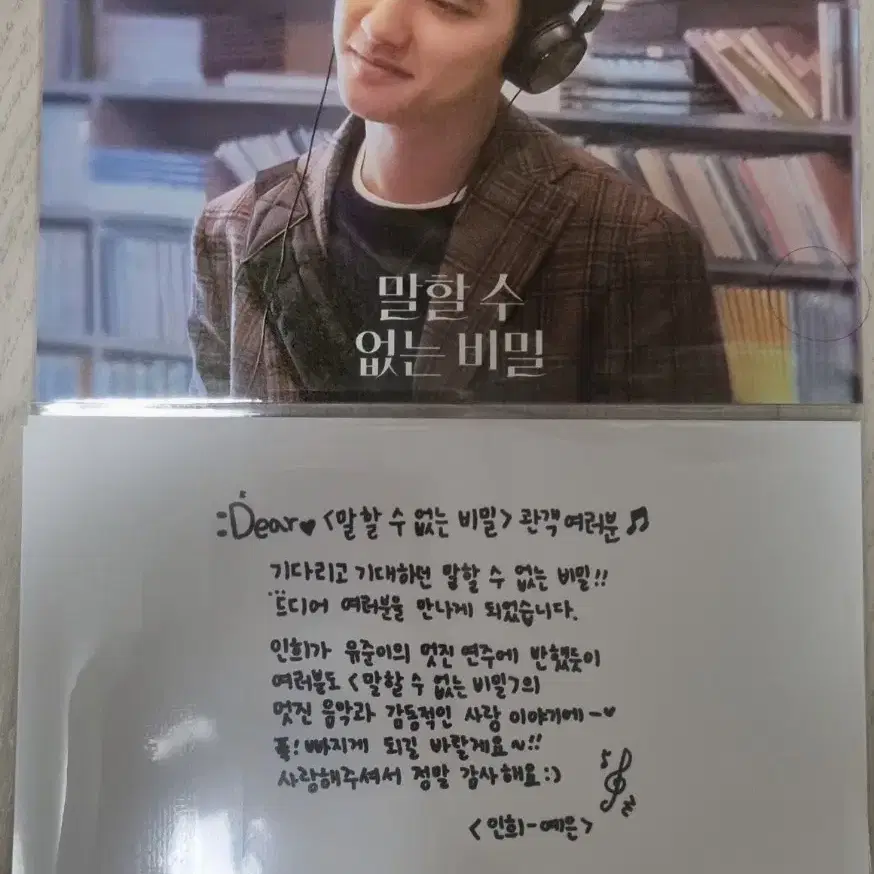 말할 수
없는 비밀
:Dear♥ <말할 수 없는 비밀> 관객 여러분♬
기다리고 기대하던 말할 수 없는 비밀!!
드디어 여러분을 만나게 되었습니다.
인희가 유준이의 멋진 연주에 반했듯이
여러분도 <말할 수 없는 비밀>의
멋진 음악과 감동적인 사랑 이야기에~♥
푹! 빠지게 되길 바랄게요~!!
사랑해주셔서 정말 감사해요:)
<인희-예은>